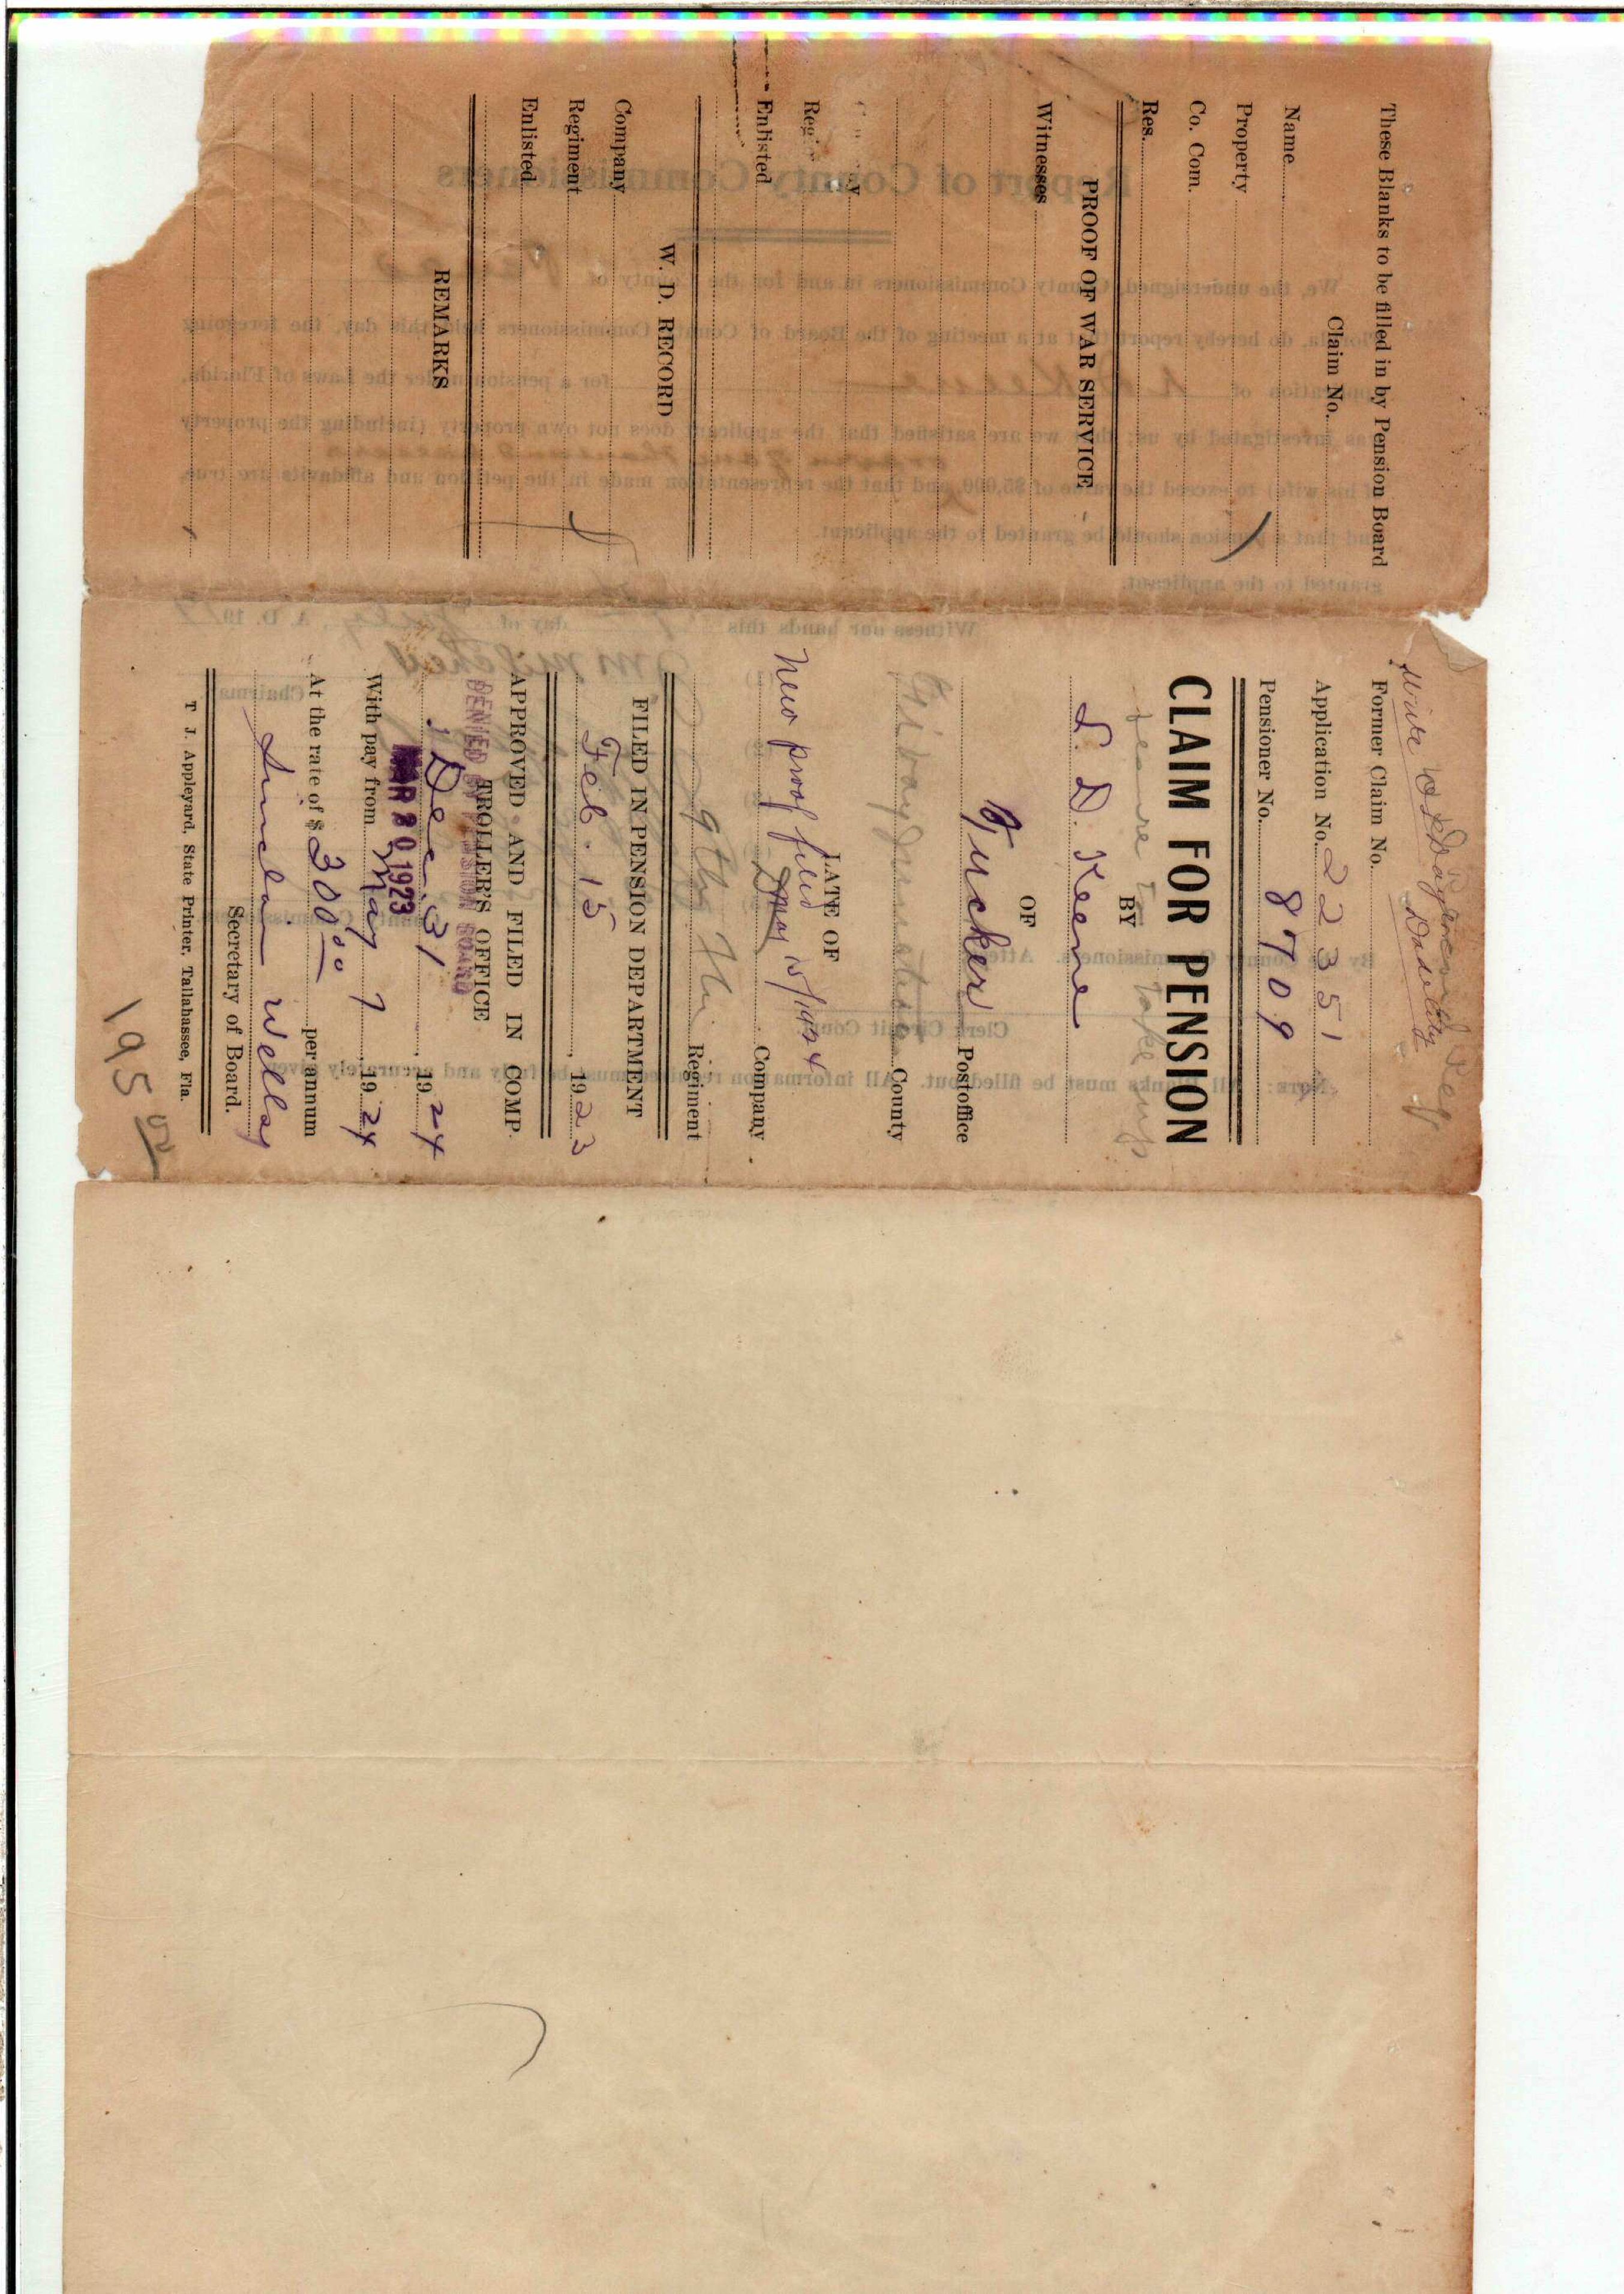 These Blanks to be filled in by Pension Board
Claim No.
Name
Property
Co. Com.
Res.
PROOF OF WAR SERVICE
Witnesses
Enlisted
W. D. RECORD
Company
Regiment
Enlisted
REMARKS
Former Claim No.
Application No. 22351
Pensioner No. 8709
CLAIM FOR PENSION
BY
L. D. Keene
OF
Tucker Postoffice
County
LATE OF
New proof filed Mar 15/1924
D Company
9th Fla. Regiment
FILED IN PENSION DEPARTMENT
Feb. 15, 1923
APPROVED AND FILED IN COMP-
TROLLER'S OFFICE
DENIED BY PENSION BOARD
Dec 31, 1924
MAR 20 1923
With pay from May 7, 1924
At the rate of $300.00 per annum
Sinclair Wells
Secretary of Board.
T. J. Appleyard, State Printer, Tallahassee, Fla.
195 00
Report of County Commissioners
We, the undersigned, County Commissioners in and for the County of
Florida, do hereby report that at a meeting of the Board of County Commissioners held this day, the foregoing
application of L D Keene for a pension under the Laws of Florida,
was investigated by us; that we are satisfied that the applicant does not own property (including the property
of his wife) to exceed the value of $5,000, and that the representation made in the petition and affidavits are true,
and that a pension should be granted to the applicant.
granted to the applicant.
Witness our hands this day of July, A. D. 19
Chairman
By County Commissioners. Attest
Clerk Circuit Court.
Note: All Blanks must be filled out. All information required must be fully and accurately given.